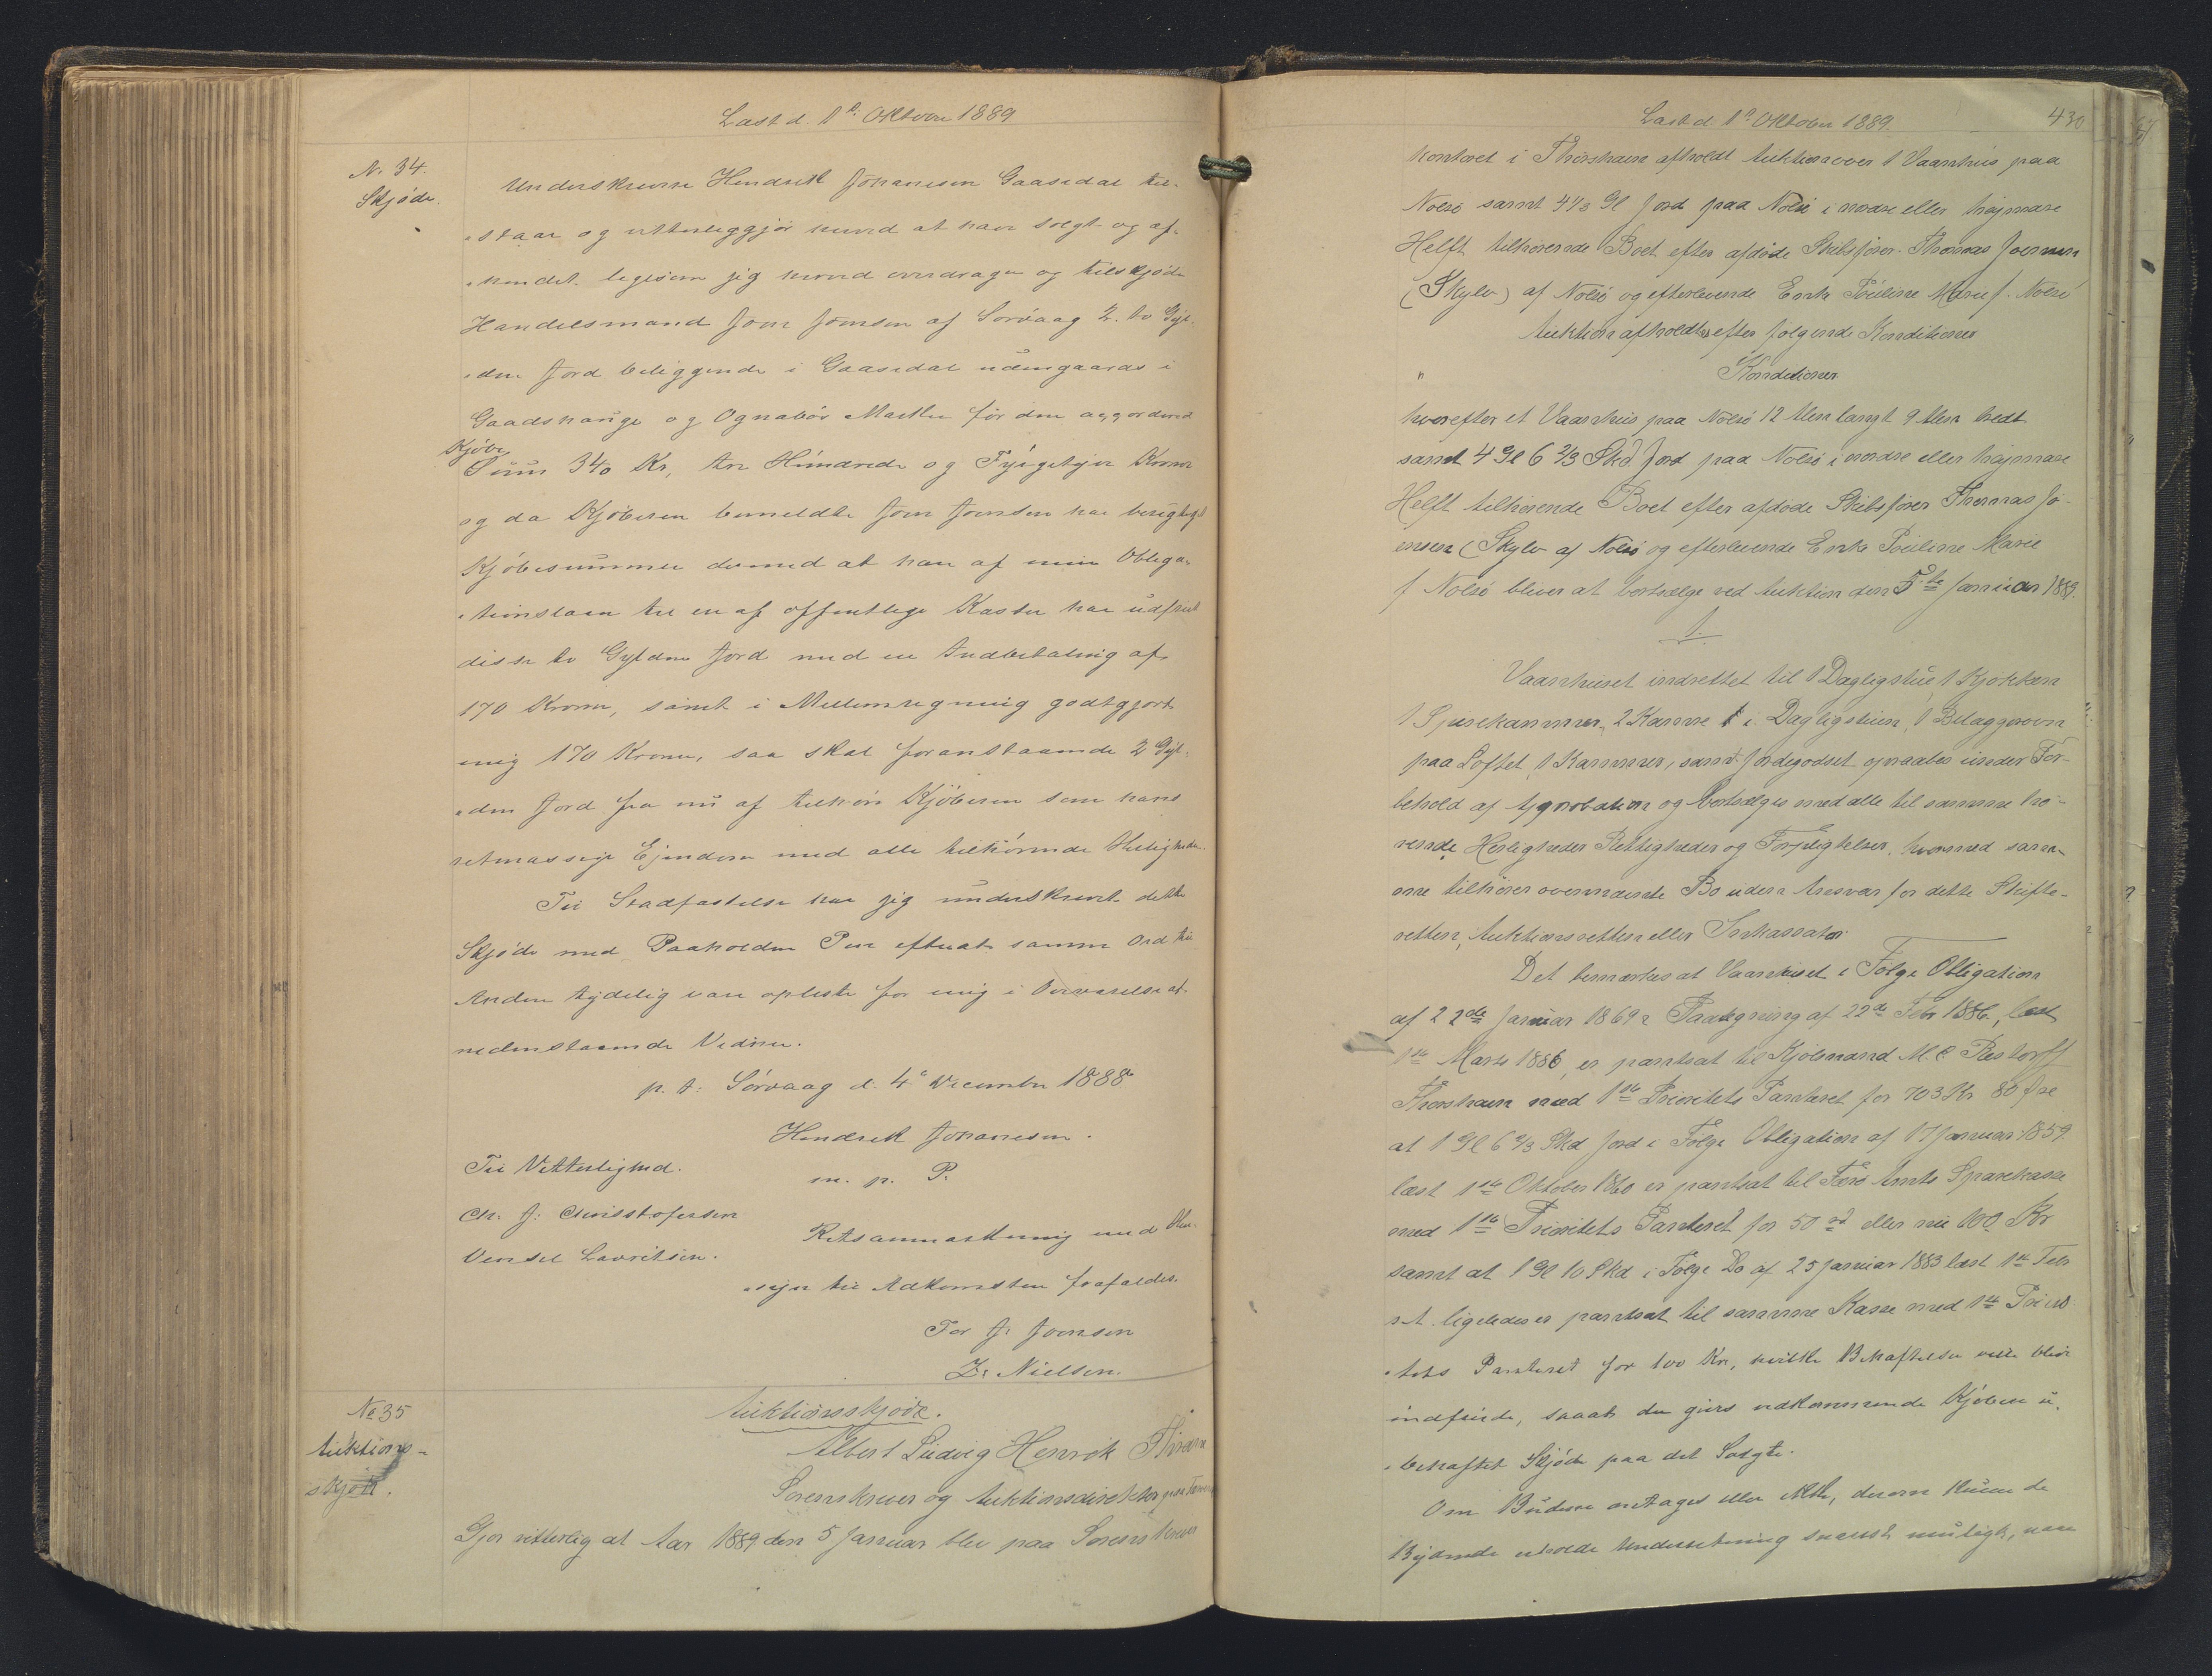 Læst d. 1ᵗ Oktober 1889
N. 34.
Skjøde.
Underskrevne Hendrik Johannesen Gaasedal til-
staar og vitterliggjør herved at have solgt og af-
hændet ligesom jeg herved overdrager og tilskjøder
Handelsmand Joen Joensen af Sørvaag 2. to Gyl-
den Jord beliggende i Gaasedal udengaards i
Gaadshauge og Ognabør Marker for den accorderede
Kjøbe
Sum 340 Kr, tre Hundrede og Fyrgetyve Kroner
og da Kjøberen bemeldte Joen Joensen har berigtiget
Kjøbesummen dermed at han af min Obliga-
tionslaan til en af offentlige Kasser har udfriet
disse to Gylden Jord med en Indbetaling af
170 Kroner, samt i Mellemregning godtgjort
mig 170 Kroner, saa skal foranstaaende 2 Gyl-
den Jord fra nu af tilhøre Kjøberen som hans
retmæssige Ejendom med alle tilhørende Herligheder.
Til Stadfæstelse har jeg underskrevet dette
Skjøde med Paaholden Pen efterat samme Ord til
Andet tydelig var oplæst for mig i Overværelse af
nedenstaaende Vidner.
p. t. Sørvaag d. 4ᵈ December 1888
Hendrik Johannesen.
m. p. P.
Til Vitterlighed.
Chr. J. Christofersen
Vensel Lavritsen.
Retsanmærkning med Hen-
syn til Adkomsten frafaldes.
For J. Joensen
Z. Nielsen.
No 35
Auktions-
skjøde.
Auktionsskjøde.
Albert Ludvig Henrik
Sorenskriver og Auktionsdirektør paa Færøerne
Gjør vitterlig at Aar 1889 den 5 Januar blev paa Sorenskriver
Læst d. 1ᵗ Oktober 1889.
430
kontoret i Thorshavn afholdt Auktion over 1 Vaanhus paa
Nolsø samt 4 1/3 Gl Jord paa Nolsø i nordre eller højmare
Helft tilhørende Boet efter afdøde Skibsfører Thomas Joensen
(Skylv) af Nolsø og efterlevende Enke Pouline Marie f. Nolsø
Auktion afholdtes efter følgende Konditioner
" Konditioner
hvorefter et Vaanhus paa Nolsø 12 Alen langt 9 Alen bredt
samt 4 Gl 6 2/3 Skd Jord paa Nolsø i nordre eller højmare
Helft tilhørende Boet efter afdøde Skibsfører Thomas Jo-
ensen (Skylv af Nolsø og efterlevende Enke Pouline Marie
f Nolsø bliver at bortsælge ved Auktion den 5ᵗᵉ Januar 1889.
1.
Vaanhuset indrettet til 1 Dagligstue, 1 Kjøkken
1 Spisekammer, 2 Kamre i Dagligstuen, 1 Bilæggerovn
paa Loftet, 1 Kammer, samt Jordegodset opraabes under For-
behold af Approbation og bortsælges med alle til samme hø-
rende Herligheder Rettigheder og Forpligtelser, hvormed sam-
me tilhører ovennævnte Bo uden Ansvar for dette Skifte-
retten, Auktionsretten eller Inkassator
Det bemærkes at Vaanhuset i Følge Obligation
af 22ᵈᵉ Januar 1869 Paategning af 22ᵈᵉ Febr 1886, læst
1ˢᵗᵉ Marts 1886, er pantsat til Kjøbmand M C Restorff
Thorshavn med 1ˢᵗᵉ Prioritets Panteret for 703 Kr 80 Øre
at 1 Gl 6 2/3 Skd Jord i Følge Obligation af 17 Januar 1859
læst 1ˢᵗᵉ Oktober 1860 er pantsat til Færø Amts Sparekasse
med 1ˢᵗᵉ Prioritets Panteret for 50 rd eller nu 100 Kr
samt at 1 Gl 10 Skd i Følge Do af 25 Januar 1883 læst 1ˢᵗᵉ Febr
s. A. ligeledes er pantsat til samme Kasse med 1ˢᵗᵉ Priori-
tets Panteret for 100 Kr, hvilke Behæftelser ville blive
indfriede, saaat der gives vedkommende Kjøbere u-
behæftet Skjøde paa det Solgte.
Om Budene antages eller ikke, derom kunne de
Bydende erholde Underretning snarest muligt, naar